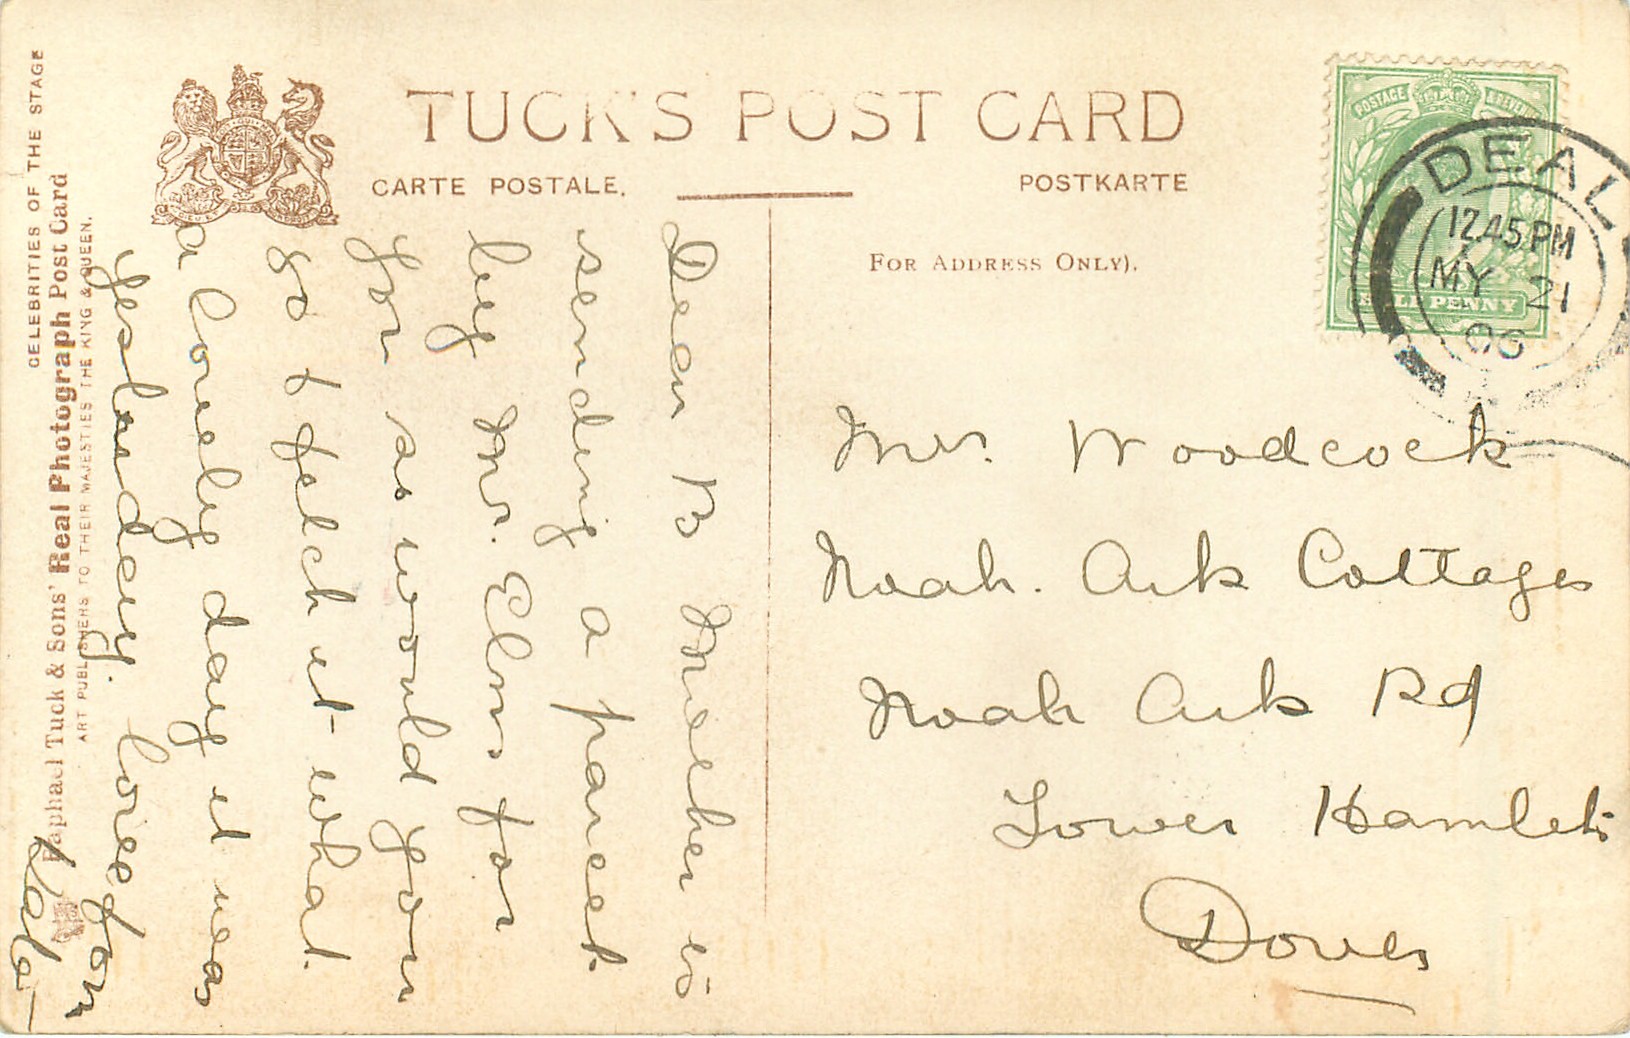 TUCK'S POST CARD
CARTE POSTALE.
POSTKARTE
FOR ADDRESS ONLY).
CELEBRITIES OF THE STAGE
Raphael Tuck & Sons' Real Photograph Post Card
ART PUBLISHERS TO THEIR MAJESTIES THE KING & QUEEN.
POSTAGE & REVENUE
HALF PENNY
DEAL
12.45 PM
MY 21
Dear B Mother is
sending a parcel
by Mr. Elms for
you so would you
go & fetch it what
a lovely day it was
yesterday. love from
Mrs. Woodcock
Noah. Ark Cottages
Noah Ark Rd
Tower Hamlets
Dover